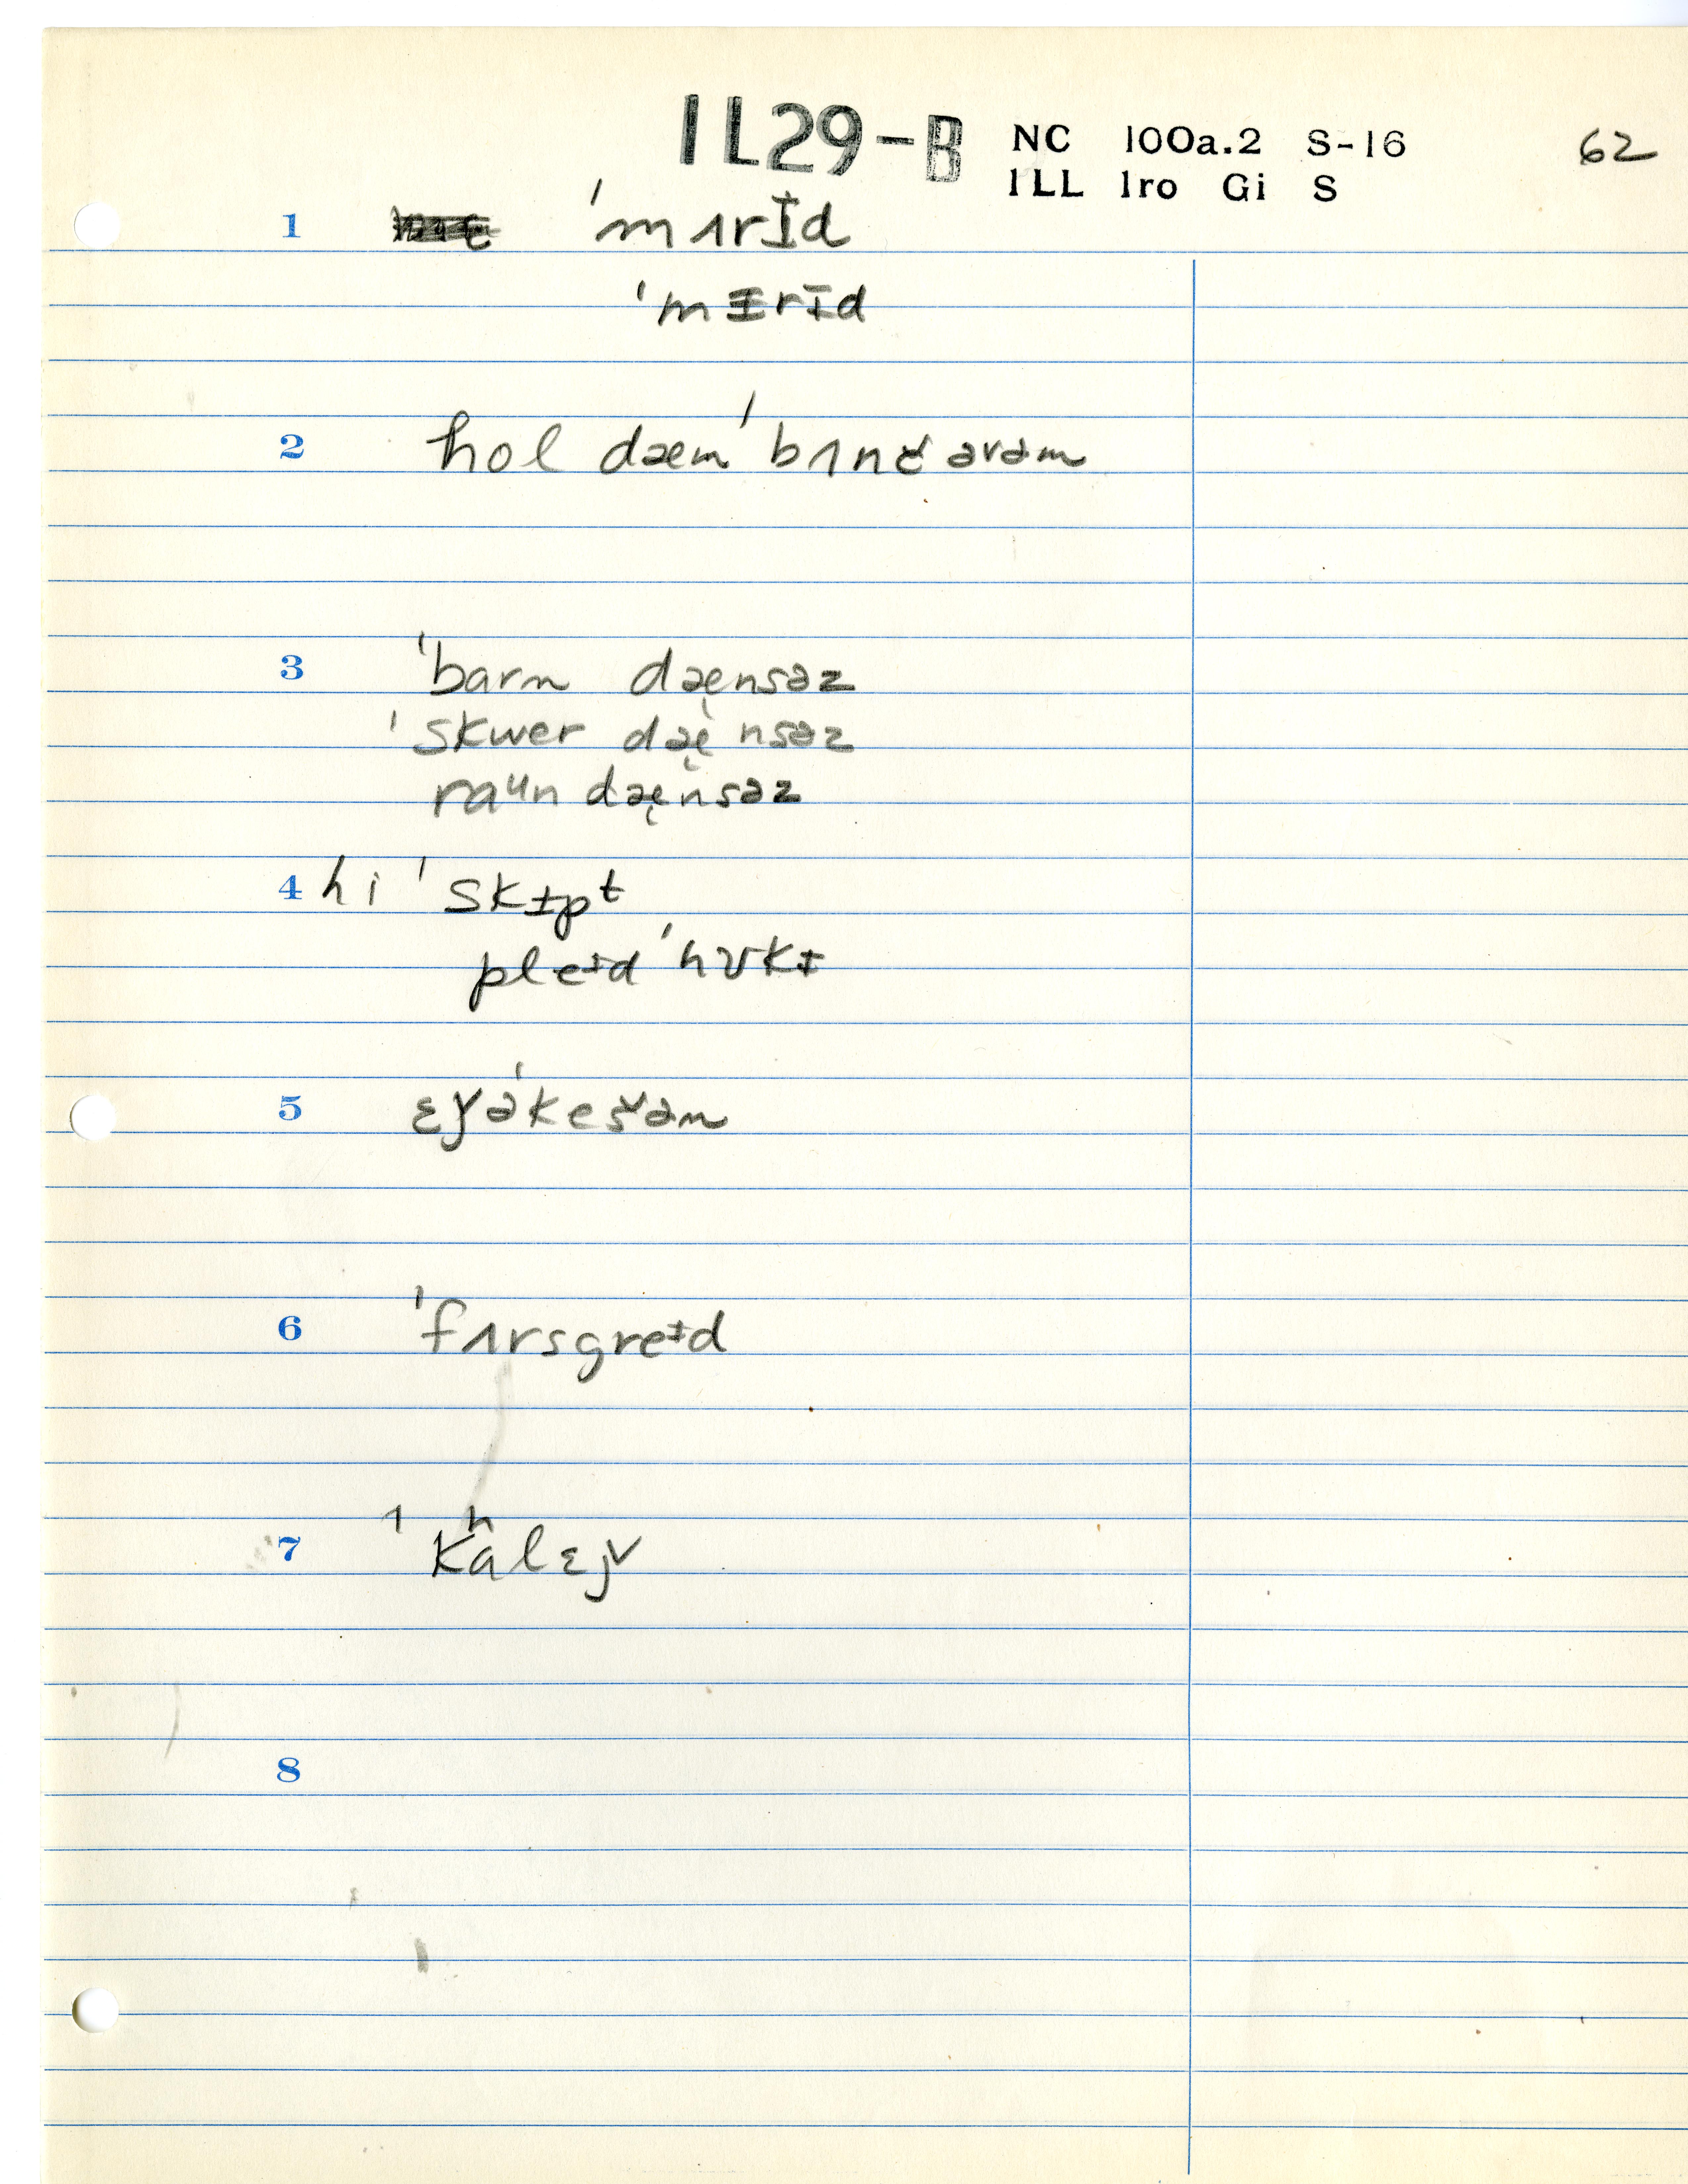 IL29-B NC 100a.2 S-16 62
ILL Iro Gi S
1 ˈmɪrɪ̄d
ˈmɪrɪ̄d
2 hol dæm ˈbʌnč əvəm
3 ˈbarn dæ̨nsəz
ˈskwer dæ̨nsəz
raᵘn dæ̨nsəz
4 hi ˈskɪpᵗ
pleɪd ˈhʊkɪ
5 ɛǰəˈkešən
6 ˈfʌrsgreɪd
7 ˈkʰalɛǰ
8